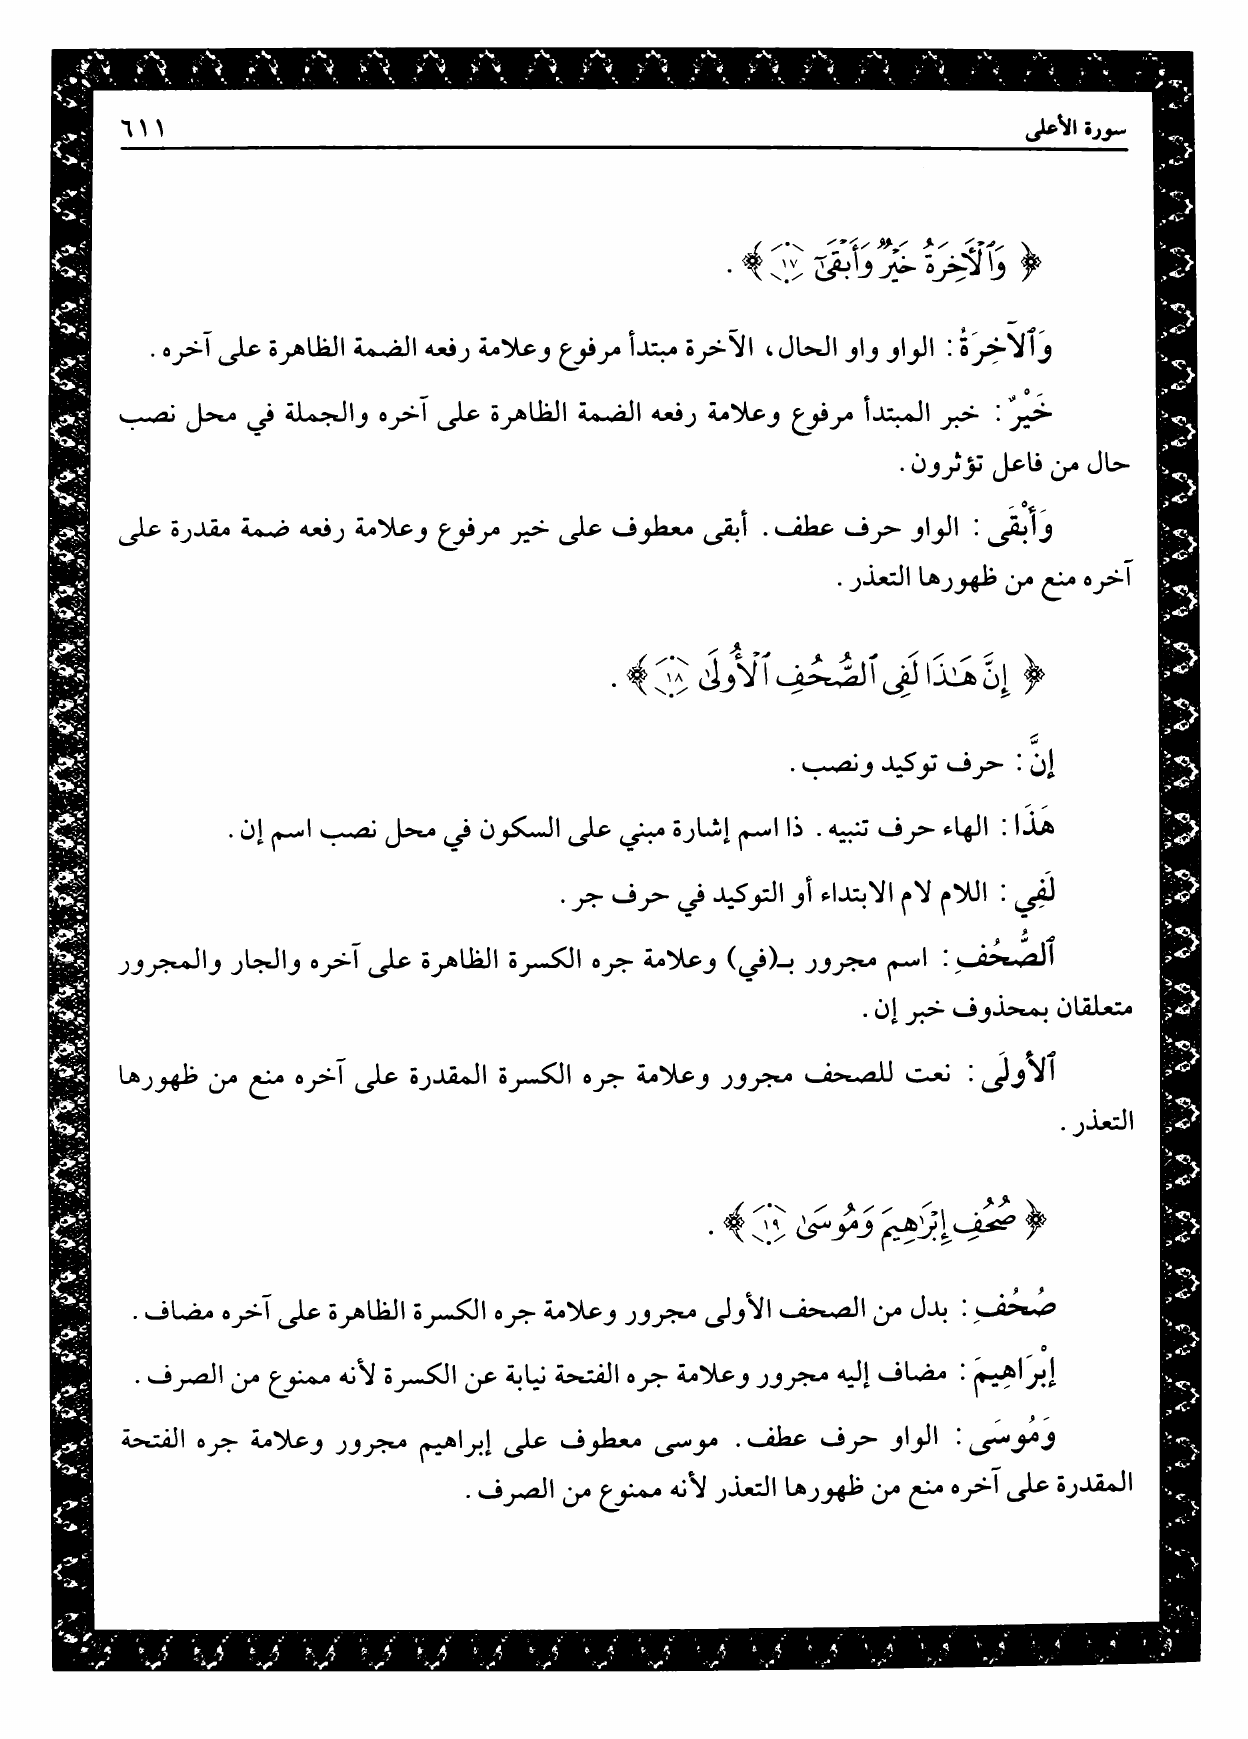 سورة الأعلى ٦١١
﴿ وَٱلْأَخِرَةُ خَيْرٌ وَأَبْقَىٰٓ ١٧ ﴾ .
وَٱلآخِرَةُ : الواو واو الحال، الآخرة مبتدأ مرفوع وعلامة رفعه الضمة الظاهرة على آخره .
خَيْرٌ : خبر المبتدأ مرفوع وعلامة رفعه الضمة الظاهرة على آخره والجملة في محل نصب
حال من فاعل تؤثرون .
وَأَبْقَى : الواو حرف عطف . أبقى معطوف على خير مرفوع وعلامة رفعه ضمة مقدرة على
آخره منع من ظهورها التعذر .
﴿ إِنَّ هَـٰذَا لَفِى ٱلصُّحُفِ ٱلْأُولَىٰ ١٨ ﴾ .
إنَّ : حرف توكيد ونصب .
هَذَا : الهاء حرف تنبيه . ذا اسم إشارة مبني على السكون في محل نصب اسم إن .
لَفِي : اللام لام الابتداء أو التوكيد في حرف جر .
ٱلصُّحُفِ : اسم مجرور بـ(في) وعلامة جره الكسرة الظاهرة على آخره والجار والمجرور
متعلقان بمحذوف خبر إن .
ٱلأُولَى : نعت للصحف مجرور وعلامة جره الكسرة المقدرة على آخره منع من ظهورها
التعذر .
﴿ صُحُفِ إِبْرَٰهِيمَ وَمُوسَىٰ ١٩ ﴾ .
صُحُفِ : بدل من الصحف الأولى مجرور وعلامة جره الكسرة الظاهرة على آخره مضاف .
إبْرَاهِيمَ : مضاف إليه مجرور وعلامة جره الفتحة نيابة عن الكسرة لأنه ممنوع من الصرف .
وَمُوسَى : الواو حرف عطف . موسى معطوف على إبراهيم مجرور وعلامة جره الفتحة
المقدرة على آخره منع من ظهورها التعذر لأنه ممنوع من الصرف .